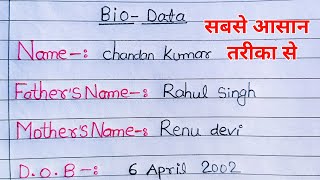 Bio-Data
सबसे आसान
तरीका से
Name-: chandan kumar
Father's Name-: Rahul Singh
Mother's Name-: Renu devi
D.O.B-: 6 April 2002